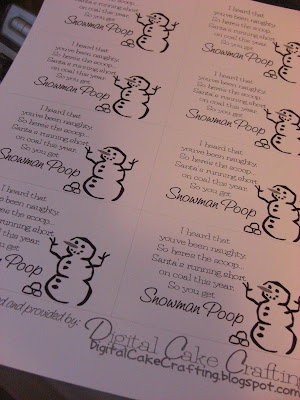 Santa's running short
on coal this year.
So you get
Snowman Poop
I heard that
you've been naughty.
So heres the scoop...
Santa's running short
on coal this year.
So you get
Snowman Poop
I heard that
you've been naughty.
So heres the scoop...
Santa's running short
on coal this year.
So you get
Snowman Poop
I heard that
you've been naughty.
So heres the scoop...
Santa's running short
on coal this year.
So you get
Poop
Santa's running short
on coal this year.
So you get
Snowman Poop
I heard that
you've been naughty.
So heres the scoop...
Santa's running short
on coal this year.
So you get
Snowman Poop
I heard that
you've been naughty.
So heres the scoop...
Santa's running short
on coal this year.
So you get
Snowman Poop
I heard that
you've been naughty.
So heres the scoop...
Santa's running short
on coal this year.
So you get
Snowman Poop
and provided by: Digital Cake Crafting
DigitalCakeCrafting.blogspot.com